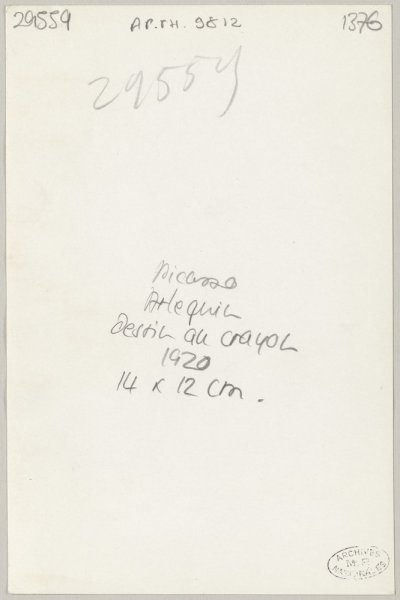 29559
AP.PH. 9812
1376
29559
Picasso
Arlequin
Dessin au crayon
1920
14 x 12 cm.
ARCHIVES
NATIONALES